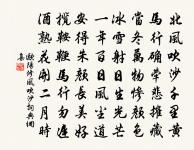 北風吹沙千里黃
馬行确犖悲摧藏
當冬萬物慘顏色
冰雪射日生光芒
一年百日風塵道
安得朱顏長美好
攬鞍鞭馬行勿遲
酒熟花開二月時
歐陽修風吹沙詞典網
集